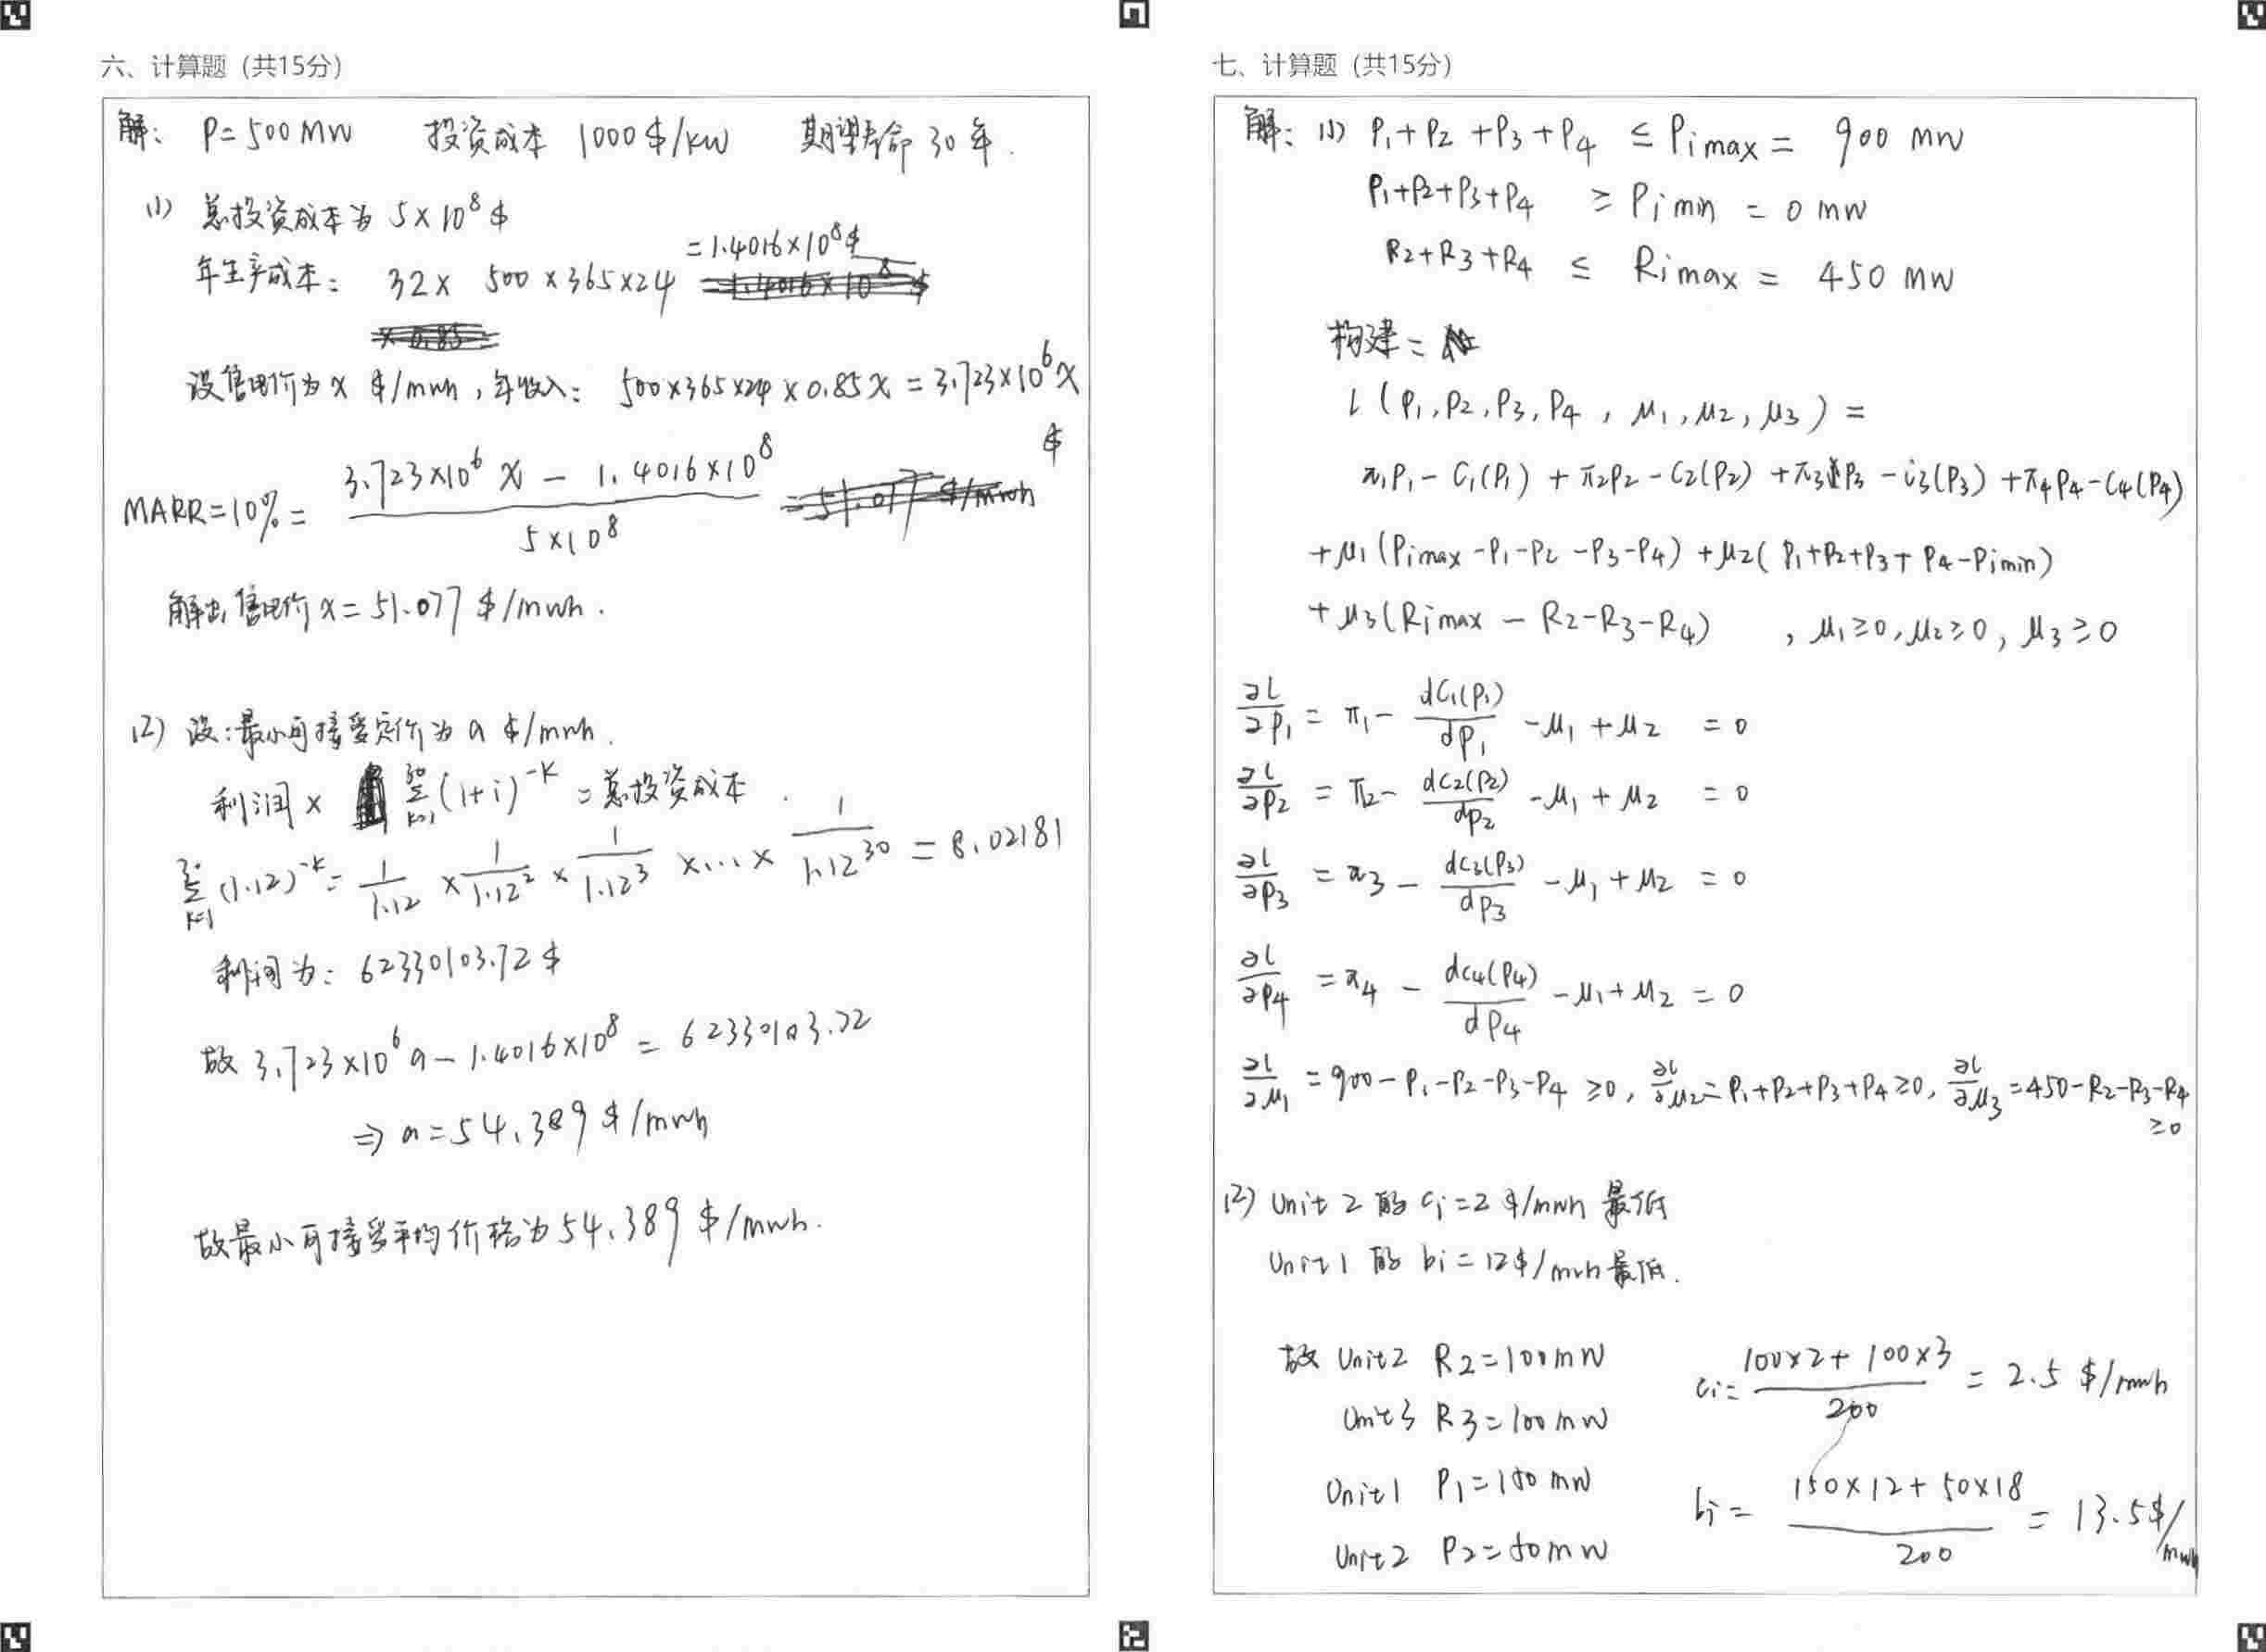 六、计算题（共15分）
解： P=500MW 投资成本 1000$/kW 期望寿命30年.
(1) 总投资成本为 5×10⁸$
年生产成本： 32× 500×365×24 =1.4016×10⁸$
设售电价为x $/mwh，年收入： 500×365×24×0.85x=3.723×10⁶x $
MARR=10%= (3.723×10⁶x − 1.4016×10⁸)/(5×10⁸)
解出售电价x=51.077$/mwh.
(2) 设：最小可接受定价为a $/mwh.
利润× ∑_{k=1}^{30}(1+i)^{-k} =总投资成本.
∑_{k=1}^{30}(1.12)^{-k} = 1/1.12 × 1/1.12² × 1/1.12³ ×...× 1/1.12³⁰ = 8.02181
利润为：62330103.72$
故 3.723×10⁶a−1.4016×10⁸ = 62330103.72
⇒ a=54.389$/mwh
故最小可接受平均价格为54.389$/mwh.
七、计算题（共15分）
解：(1) P₁+P₂+P₃+P₄ ≤ Pimax = 900 MW
P₁+P₂+P₃+P₄ ≥ Pimin = 0 MW
R₂+R₃+R₄ ≤ Rimax = 450 MW
构建=
L(P₁,P₂,P₃,P₄,μ₁,μ₂,μ₃)=
π₁P₁−C₁(P₁)+π₂P₂−C₂(P₂)+π₃P₃−C₃(P₃)+π₄P₄−C₄(P₄)
+μ₁(Pimax−P₁−P₂−P₃−P₄)+μ₂(P₁+P₂+P₃+P₄−Pimin)
+μ₃(Rimax−R₂−R₃−R₄) , μ₁≥0,μ₂≥0,μ₃≥0
∂L/∂P₁ = π₁ − dC₁(P₁)/dP₁ −μ₁+μ₂ = 0
∂L/∂P₂ = π₂ − dC₂(P₂)/dP₂ −μ₁+μ₂ = 0
∂L/∂P₃ = π₃ − dC₃(P₃)/dP₃ −μ₁+μ₂ = 0
∂L/∂P₄ = π₄ − dC₄(P₄)/dP₄ −μ₁+μ₂ = 0
∂L/∂μ₁ =900−P₁−P₂−P₃−P₄≥0, ∂L/∂μ₂=P₁+P₂+P₃+P₄≥0, ∂L/∂μ₃=450−R₂−R₃−R₄ ≥0
(2) Unit 2 的 Ci=2 $/mwh 最低
Unit 1 的 bi=12$/mwh最低.
故 Unit2 R₂=100mW ci= (100×2+100×3)/200 = 2.5 $/mwh
Unit3 R₃=100mW
Unit1 P₁=150mW bi= (150×12+50×18)/200 = 13.5$/mwh
Unit2 P₂=50mW